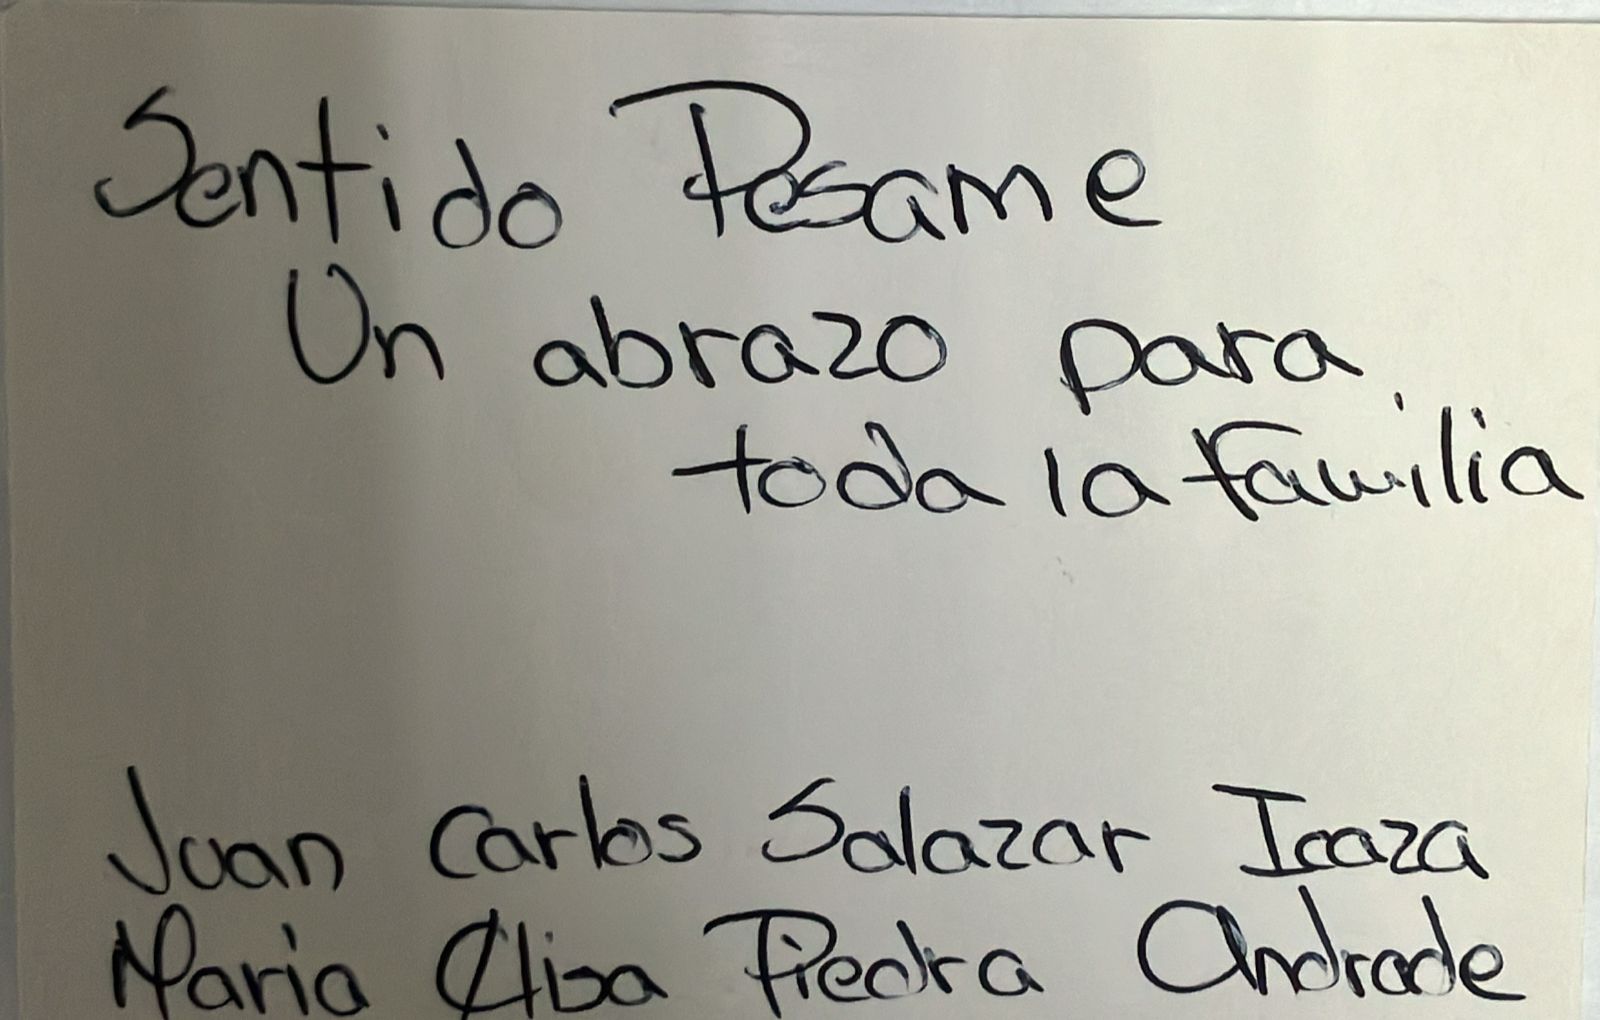 Sentido Pesame
Un abrazo para
toda la familia
Juan Carlos Salazar Icaza
Maria Elisa Piedra Andrade